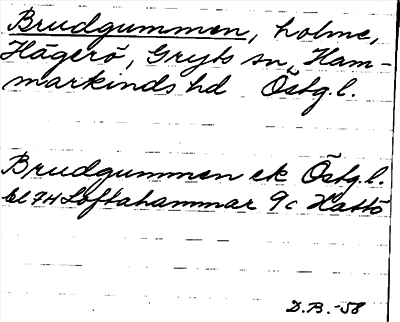 Brudgummen, holme,
Hägerö, Gryts sn, Ham-
markinds hd Östg.l.
Brudgummen ek Östg.l.
bl 7H Loftahammar 9c Kattö
D.B.-58